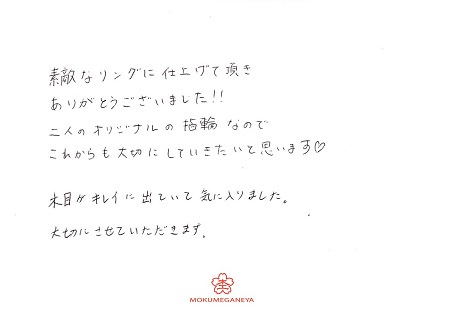 素敵なリングに仕上げて頂き
ありがとうございました!!
二人のオリジナルの指輪なので
これからも大切にしていきたいと思います♡
木目がキレイに出ていて気に入りました。
大切にさせていただきます。
MOKUMEGANEYA